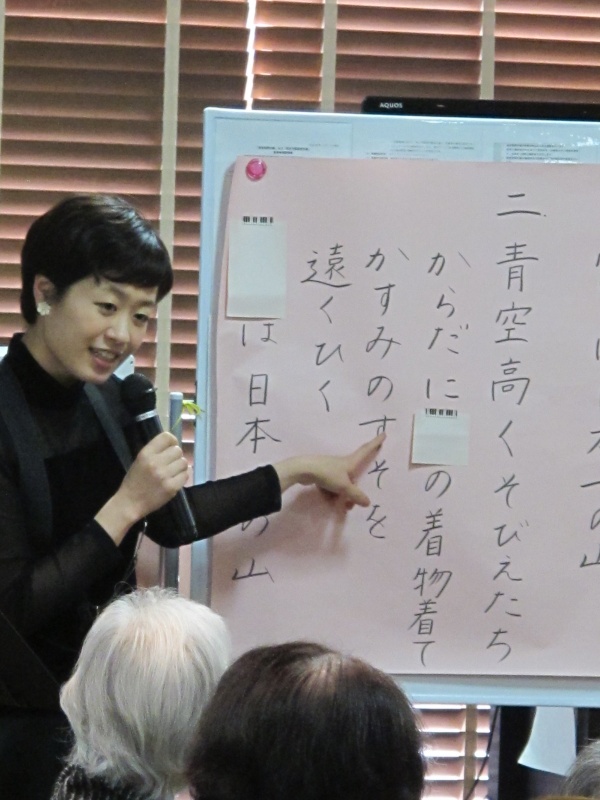 AQUOS
二 青空高くそびえたち
からだに の着物着て
かすみのすそを
遠くひく
は日本 の山